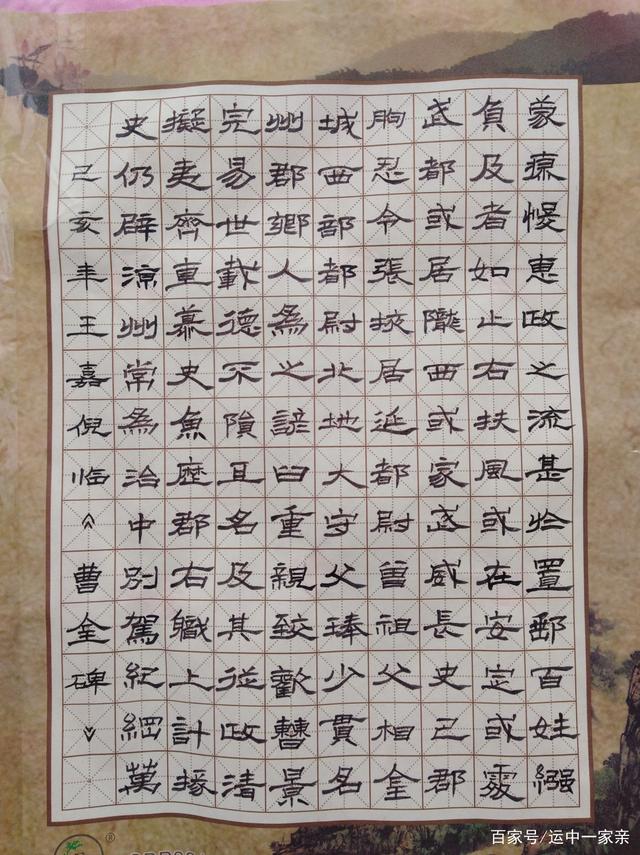 蒙瘳悛惠政之流甚於置郵百姓繦
負及者如止右扶風或在安定或處
武都或居隴西或家武威長史巴郡
朐忍令張掖居延都尉曾祖父相全
城西部都尉北地大守父琫少貫名
州郡鄉人為之諺曰重親致歡曹景
完易世載德不隕其名及其從政清
擬夷齊直慕史魚歷郡右職上計掾
史仍辟涼州常為治中別駕紀綱萬
己亥年王嘉倪临《曹全碑》
百家号/运中一家亲